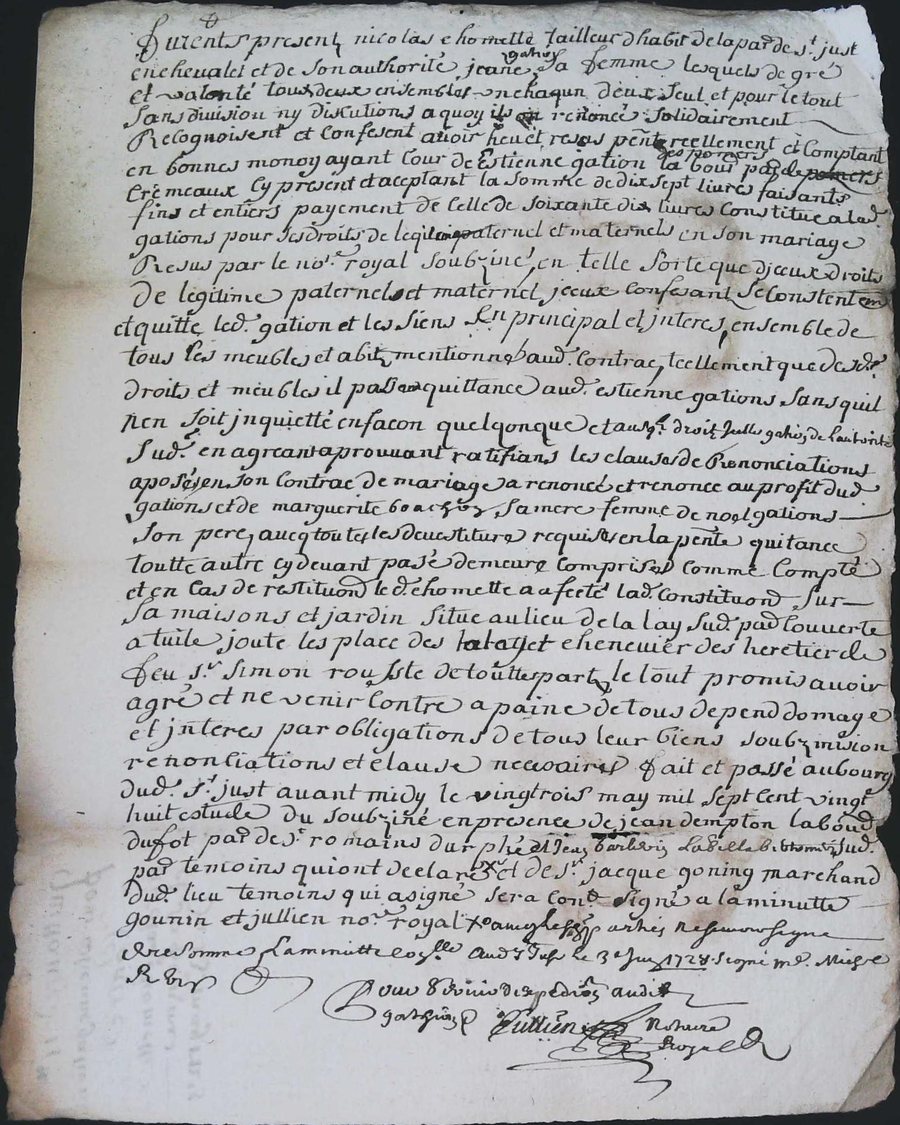 furents present nicolas chomette tailleur dhabit de la par de st just
en chevalet et de son authorité jeane gation sa femme lesquels de gré
et volonté tous deux ensembles un chaqun deux seul et pour le tout
sans division ny diskutions a quoy ils on renoncé solidairement
Recognoisent et confesent auoir heu et resus pnt reellement et Comptant
en bonnes monoy ayant cour de Estienne gation labour par de pomers
Cremeaux cy present et aceptant la somme de dix sept livres faisants
fins et entiers payement de celle de soixante dix livres constitue a lad
gations pour ses droits de legitime paternel et maternels en son mariage
Resus par le nore royal soubziné, en telle sorte que djceux droits
de legitime paternels et maternel jceux confesant se constentem
et quitte led. gation et les siens En principal et jnteres, ensemble de
tous les meubles et abitz mentionné aud. contrac, tcellement que de sd.
droits et meubles il passe quittance aud. estienne gations sans quil
nen soit jnquietté en facon quelqonque et aussy. droit
sud. en agreant aprouuant ratifians les clauses de Renonciations
aposés en son contrac de mariage a renoncé et renonce au profit dud
gations et de marguerite sa mere femme de noel gations
son pere, aucq toutes les deuestiture requises en la pente quitance
toutte autre cy deuant pasé demeure comprise comme compté
et en cas de restituond led. chomette a afecté lad. constituond sur
sa maisons et jardin situe au lieu de la lay sud. par couverte
a tuile joute les place des et chenevier des heretier de
feu sr simon rousste de touttes part, le tout promis auoir
agré et ne venir contre a paine de tous depend domage
et jnteres par obligations de tous leur biens soubzmision
renonciations et clause necesaires fait et passé au bourg
dud. st. just auant midy le vingtrois may mil sept cent vingt
huit estude du soubziné en presence de jean dempton laboud
dufot par de st romains durphé et jean sud.
par temoins qui ont declarés et de sr jacque goning marchand
dud. lieu temoins qui a signé sera con. signé a la minutte
gounin et jullien nore royal
la minutte aud st just le 3e juin 1728 signé
R
Pour audit
gation Jullien Notaire
Royal